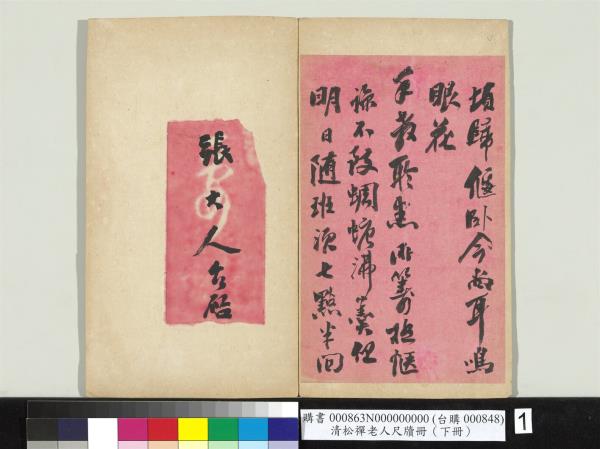 頃歸偃卧今尚耳鳴
眼花
手教聆悉所籌極愜
諒不致蜩螗沸羹但
明日隨班須七點半回
張大人台啟
購書 000863N000000000 (台購 000848)
清松禪老人尺牘冊（下冊）
1